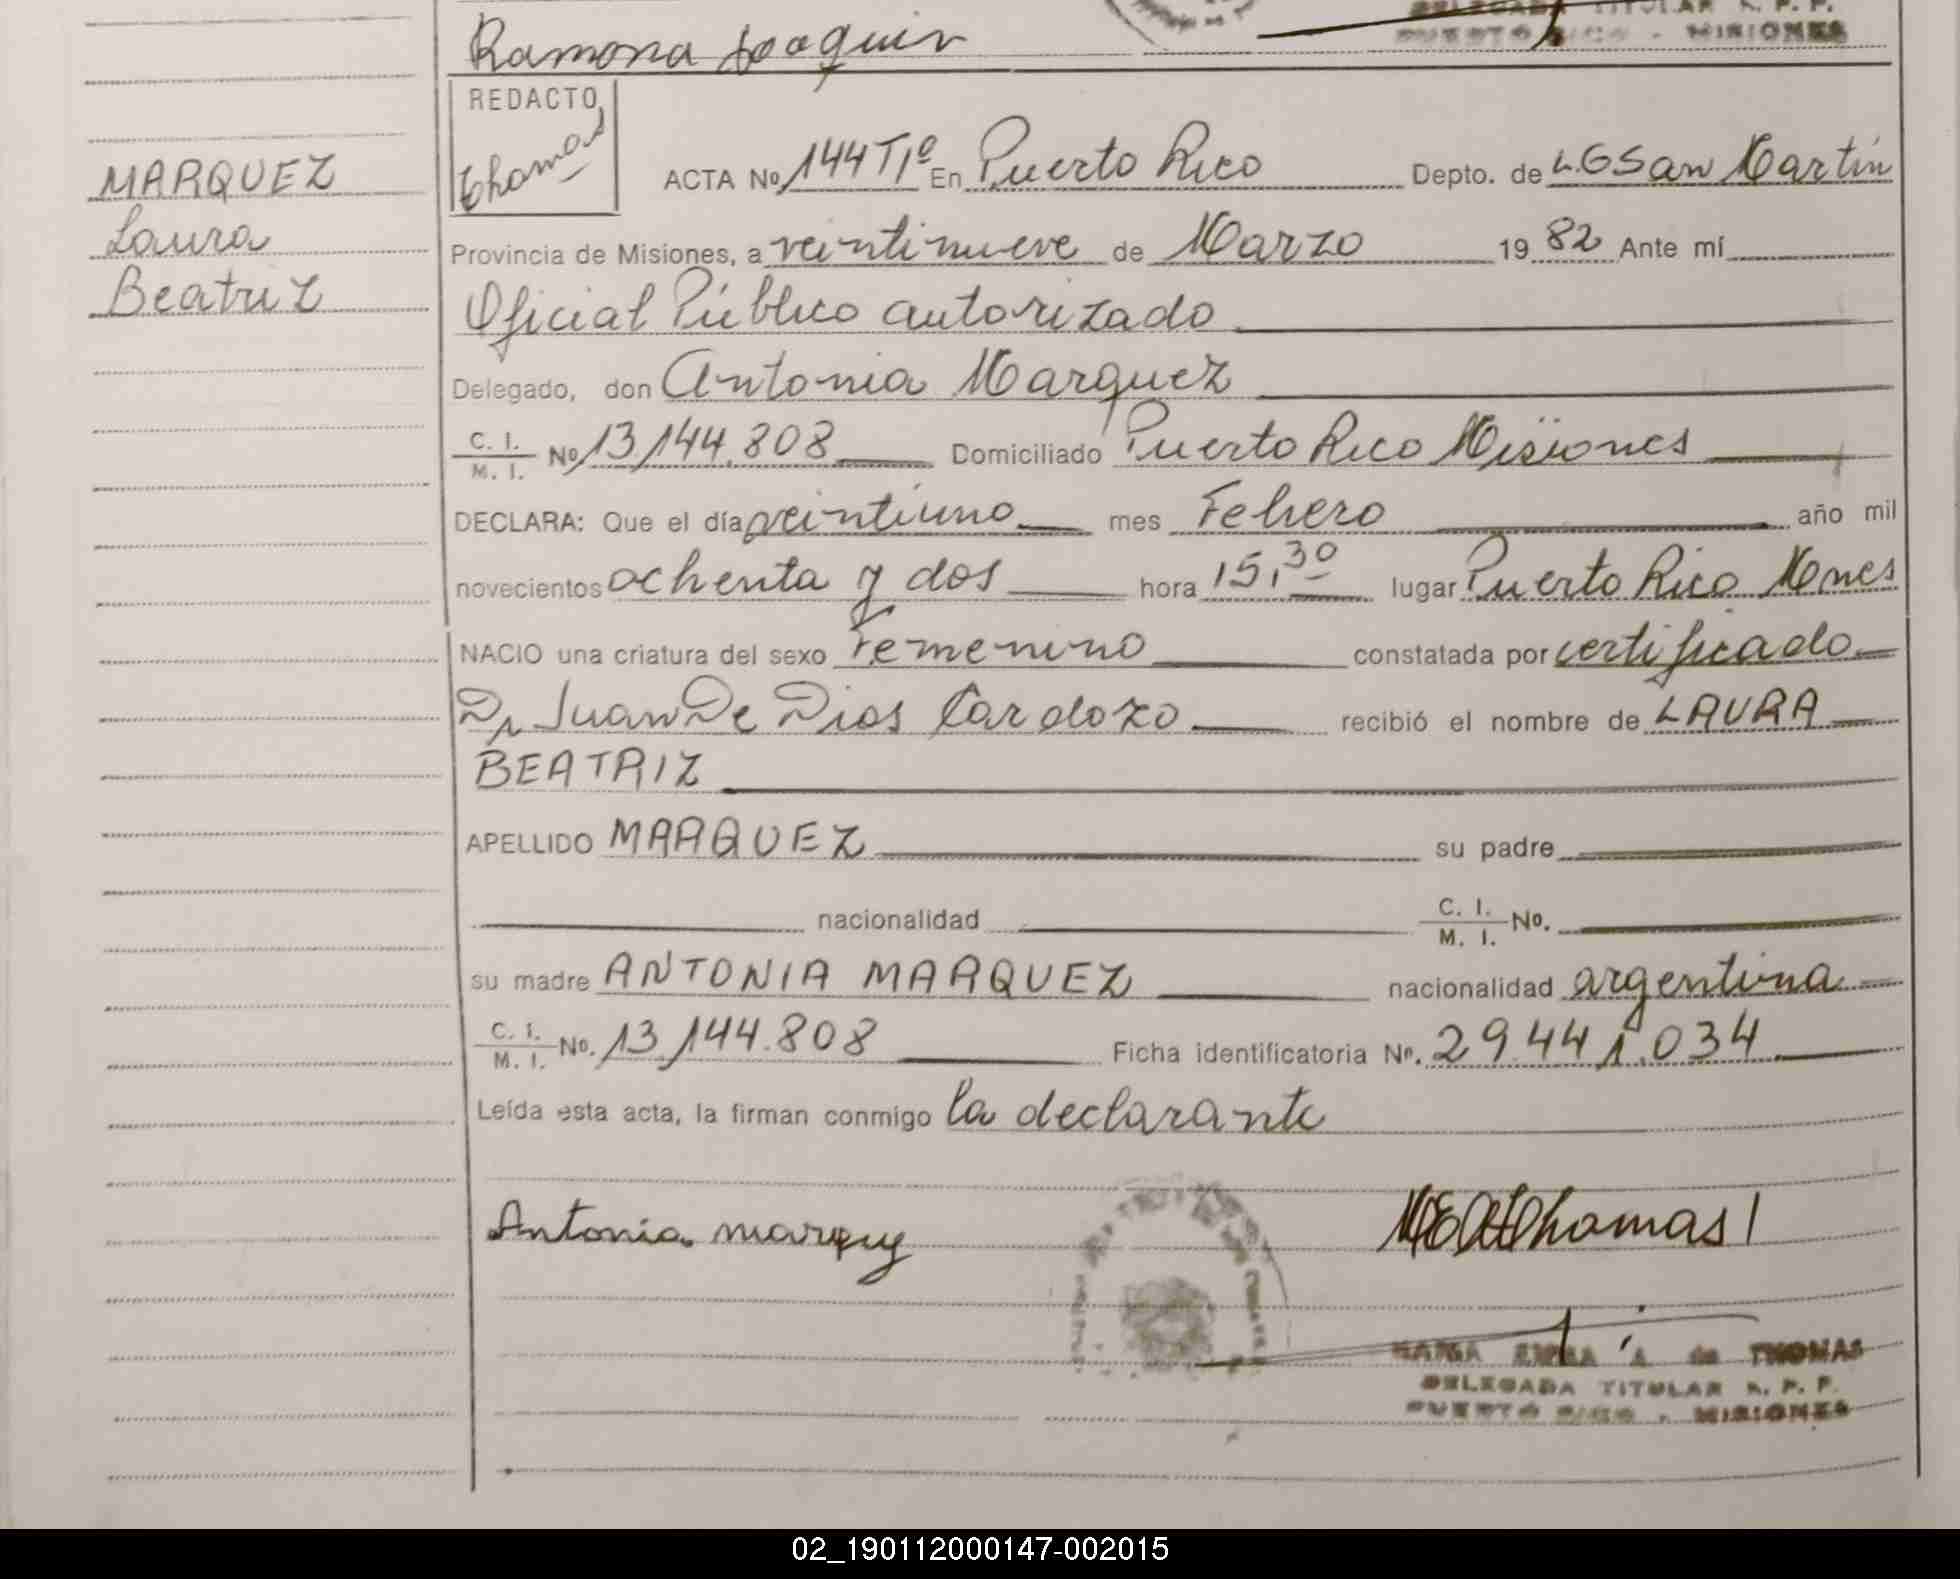 DELEGADA TITULAR R. P. P.
Ramona Joaquin
PUERTO RICO - MISIONES
REDACTO
Thomas
MARQUEZ
Laura
Beatriz
ACTA No 144 T1º En Puerto Rico Depto. de L.G San Martin
Provincia de Misiones, a veintinueve de Marzo 19 82 Ante mí
Oficial Público autorizado
Delegado, don Antonia Marquez
C. I. / M. I. No 13.144.808 Domiciliado Puerto Rico Misiones
DECLARA: Que el día veintiuno mes Febrero año mil
novecientos ochenta y dos hora 15,30 lugar Puerto Rico Mones
NACIO una criatura del sexo Femenino constatada por certificado
Dr Juan De Dios Cardozo recibió el nombre de LAURA
BEATRIZ
APELLIDO MARQUEZ su padre
nacionalidad C. I. / M. I. No.
su madre ANTONIA MARQUEZ nacionalidad argentina
C. I. / M. I. No. 13.144.808 Ficha identificatoria No. 29.441.034
Leída esta acta, la firman conmigo la declarante
Antonia marquez
Thomas
MARIA EMMA A. de THOMAS
DELEGADA TITULAR R. P. P.
PUERTO RICO - MISIONES
02_190112000147-002015